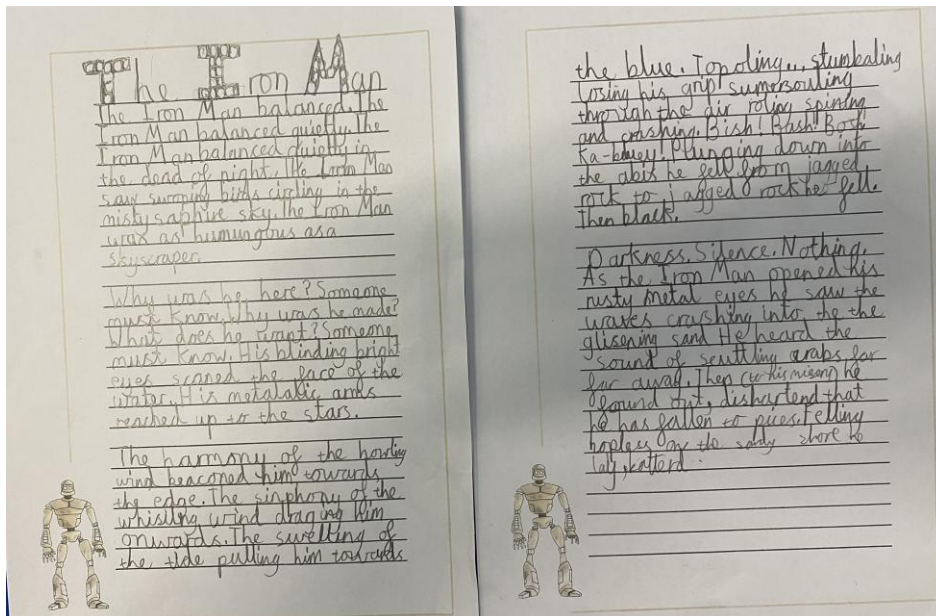 The Iron Man
The Iron Man balanced. The
Iron Man balanced quietly. The
Iron Man balanced quietly in
the dead of night. The Iron Man
saw sumping birds circling in the
misty saphire sky. The Iron Man
was as humungous as a
skyscraper.
Why was he here? Someone
must know. Why was he made?
What does he want? Someone
must know. His blinding bright
eyes scaned the face of the
water. His metalalic arms
reached up to the stars.
The harmony of the howling
wind beaconed him towards
the edge. The sinphony of the
whisling wind draging him
onwards. The swelling of
the tide pulling him towards
the blue. Topoling... stumbaling
losing his grip sumersoulting
through the air roling spining
and crashing. Bish! Bash! Bosh!
Ka-blowey! Plunging down into
the abis he fell from jagged
rock to jagged rock he fell.
then black.
Darkness. Silence. Nothing.
As the Iron Man opened his
rusty metal eyes he saw the
waves crashing into the the
glisening sand He heard the
sound of scuttling crabs far
far away. Then (to his misery) he
found out, dishartend that
he has fallen to pices. Felling
hopless on the sandy shore he
lay,